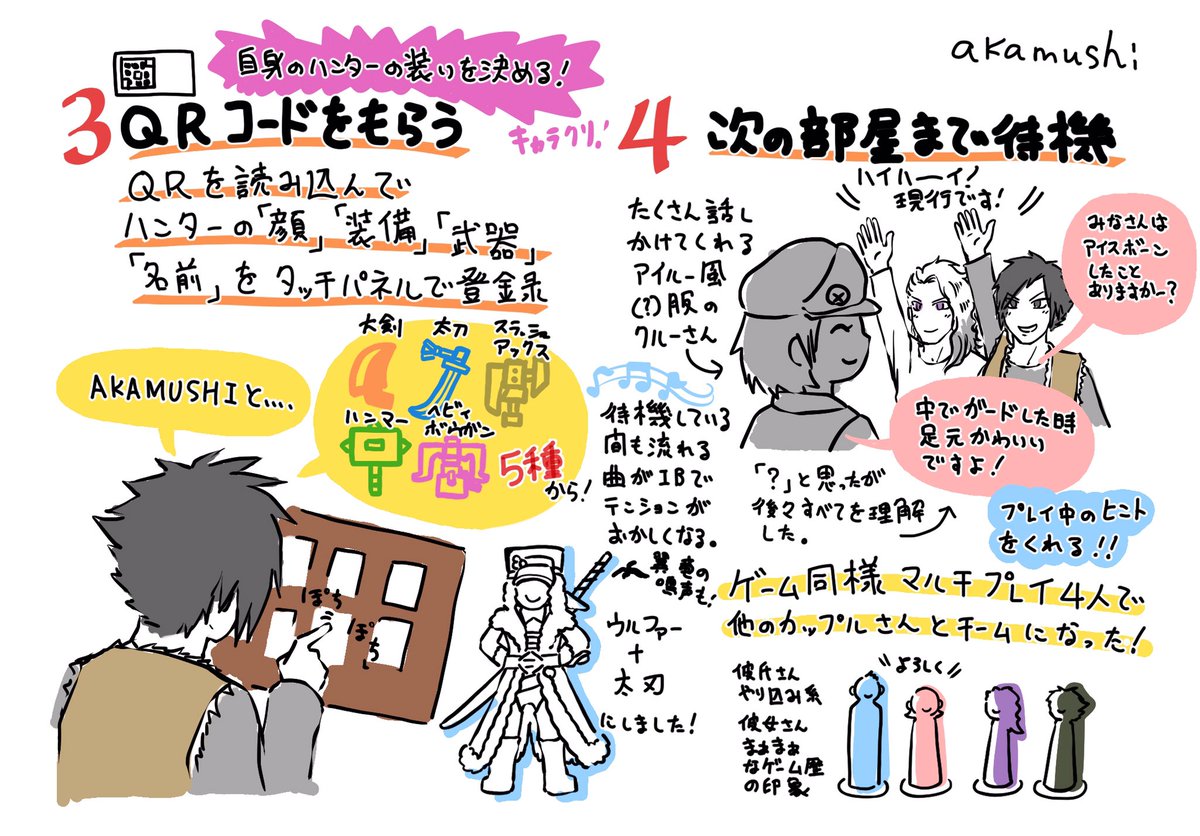 akamushi
自身のハンターの装いを決める！
3 QRコードをもらう
キャラクリ！
QRを読み込んで
ハンターの「顔」「装備」「武器」
「名前」をタッチパネルで登録
大剣
太刀
スラッシュ
アックス
ハンマー
ヘビィ
ボウガン
5種
から！
AKAMUSHIと....
ぽち
ぽち
ウルファー
+
太刀
にしました！
4 次の部屋まで待機
たくさん話し
かけてくれる
アイルー風
(?)服の
クルーさん
ハイハーイ！
現行です！
みなさんは
アイスボーン
したこと
ありますかー？
中でガードした時
足元かわいい
ですよ！
「？」と思ったが
後々すべてを理解
した。
プレイ中のヒント
をくれる！！
待機している
間も流れる
曲がIBで
テンションが
おかしくなる。
翼竜の
鳴声も！
ゲーム同様マルチプレイ4人で
他のカップルさんとチームになった！
彼氏さん
やり込み系
彼女さん
まぁまぁ
なゲーム歴
の印象
よろしく